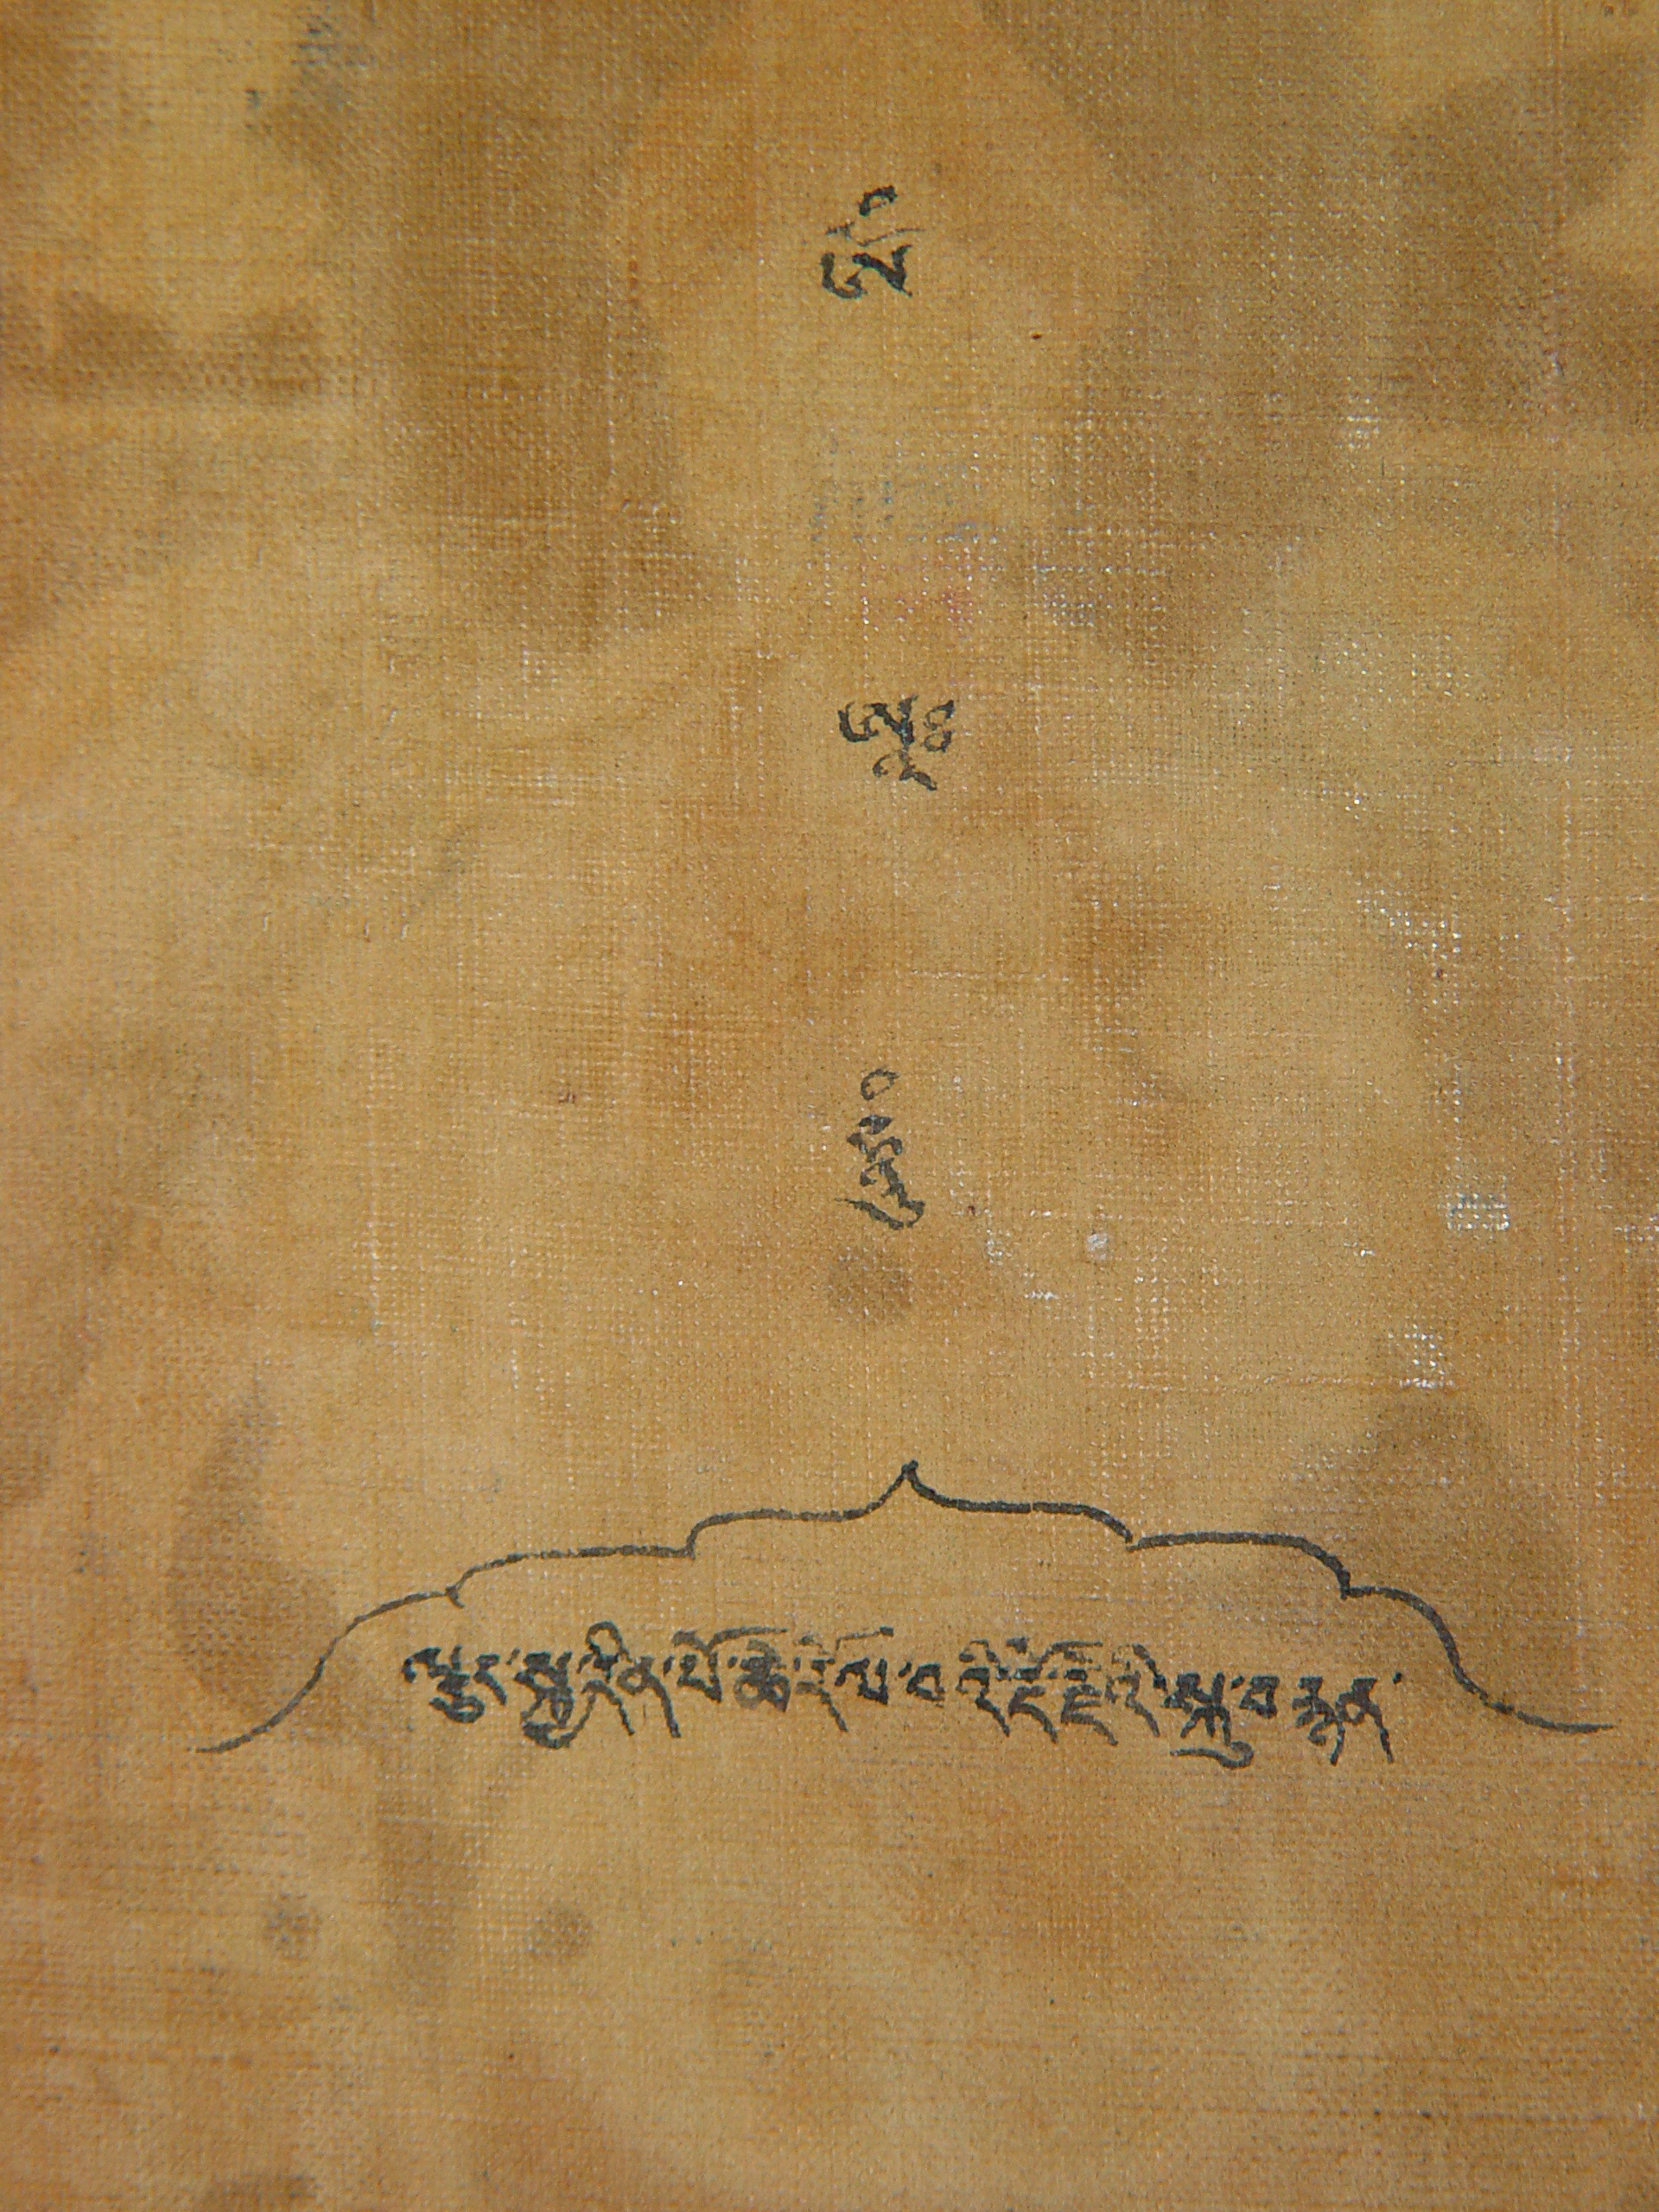 ཨོཾ
ཨཱཿ
ཧཱུྃ
ལྕང་སྐྱ་རིན་པོ་ཆེ་རོལ་པའི་རྡོ་རྗེའི་སྐུ་བརྙན་